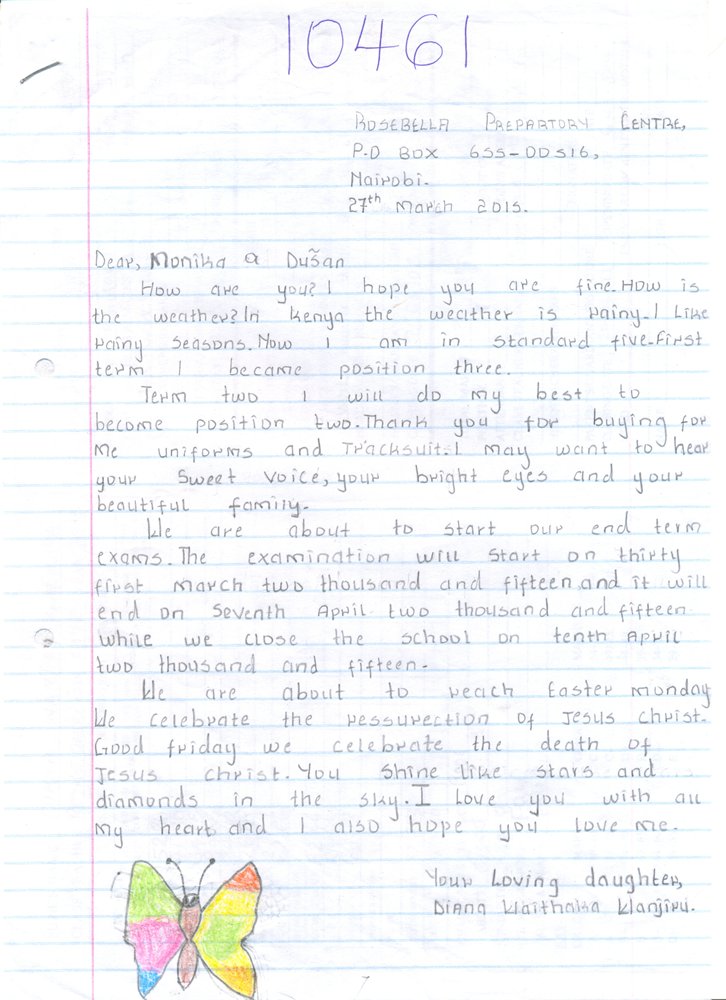 10461
ROSEBELLA PREPARTORY CENTRE,
P.O BOX 655-00516,
Nairobi.
27th March 2015.
Dear, Monika a Dušan
How are you? I hope you are fine. How is
the weather? In kenya the weather is rainy. I Like
rainy seasons. Now I am in standard five. First
term I became position three.
Term two I will do my best to
become position two. Thank you for buying for
me uniforms and Tracksuit. I may want to hear
your sweet voice, your bright eyes and your
beautiful family.
We are about to start our end term
exams. The examination will start on thirty
first march two thousand and fifteen and it will
end on seventh April two thousand and fifteen
while we close the school on tenth April
two thousand and fifteen.
We are about to reach Easter monday
We celebrate the ressurection of Jesus christ.
Good friday we celebrate the death of
Jesus christ. You shine like stars and
diamonds in the sky. I love you with all
my heart and I also hope you love me.
Your Loving daughter,
Diana Waithaka Wanjiru.